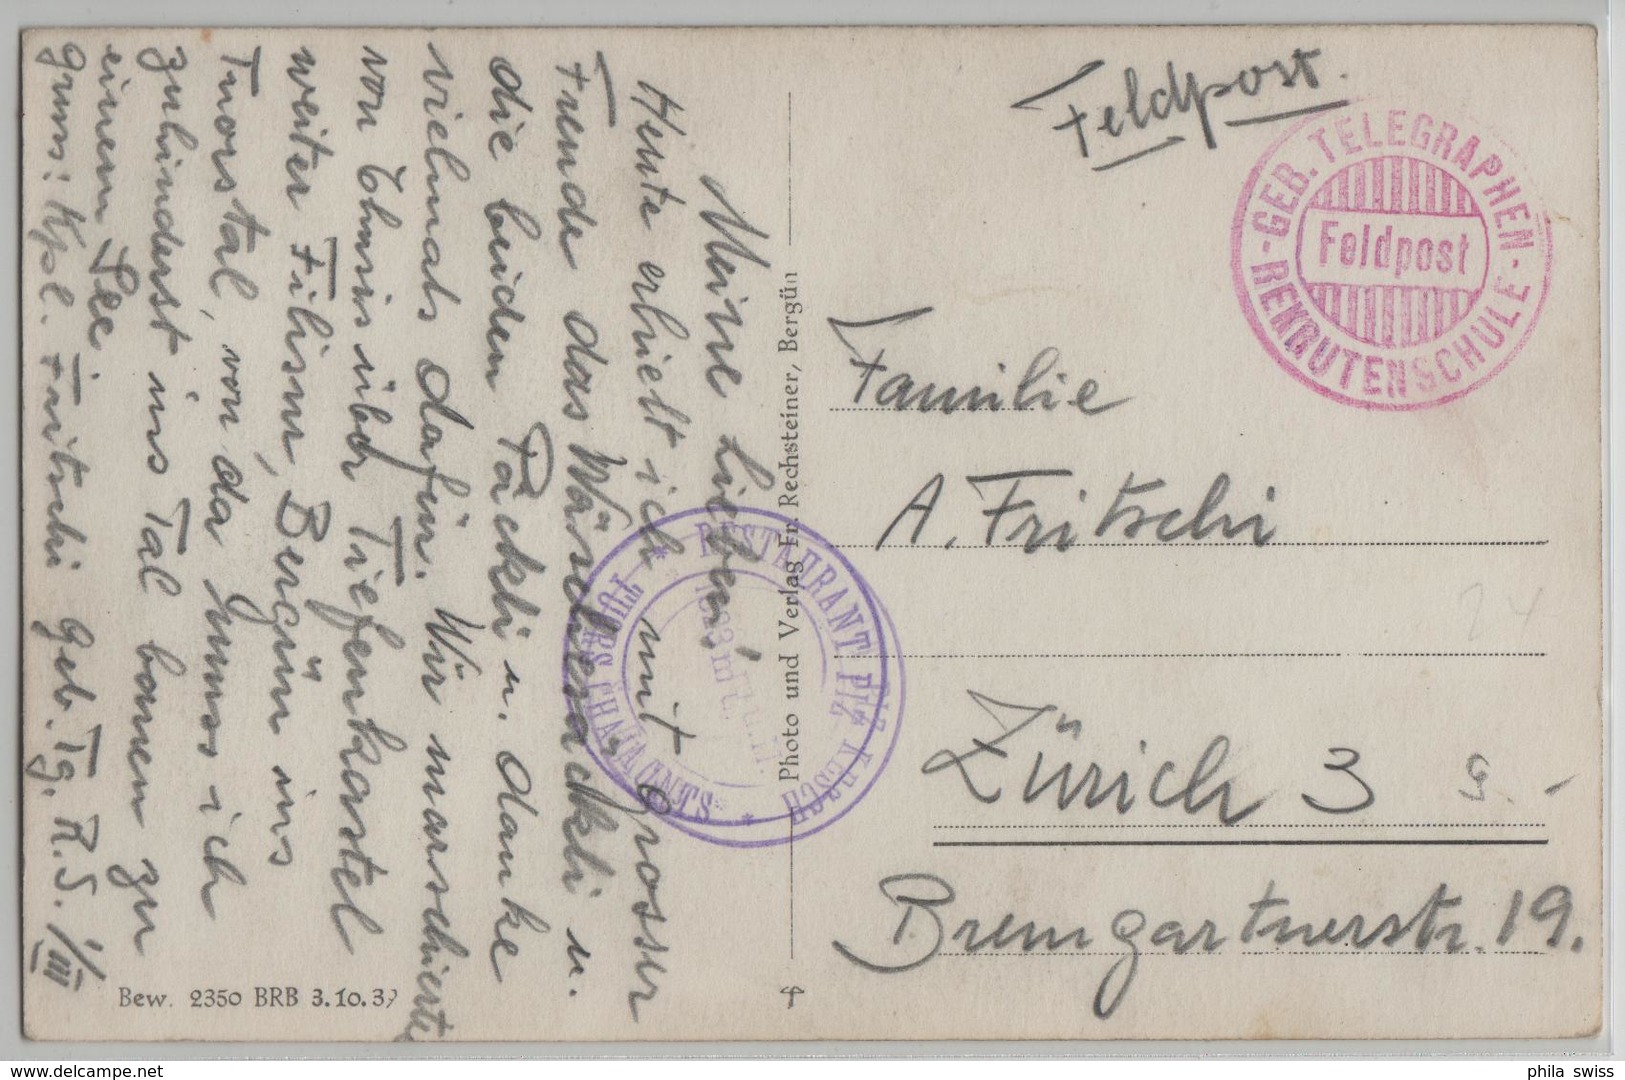 Meine Lieben!
Heute erhielt ich mit grosser
Freude das Wäschesäckli u.
die beiden Päckli u. danke
vielmals dafür. Wir marschierten
von Chnis über Tiefenkastel
weiter Filisur, Bergün ins
Tuorstal, von da muss ich
zuhinderst ins Tal bauen zu
einem See.
Gruss: Kpl. Fritschi Geb. Tg. R.S. 1/III
Bew. 2350 BRB 3.10.39
Photo und Verlag Fr. Rechsteiner, Bergün
RESTAURANT PIZ KESCH
TUORS CHACLAVUOT
Feldpost.
GEB. TELEGRAPHEN-
REKRUTENSCHULE
Feldpost
Familie
A. Fritschi
Zürich 3
Bremgartnerstr. 19.
24
phila swiss
www.delcampe.net